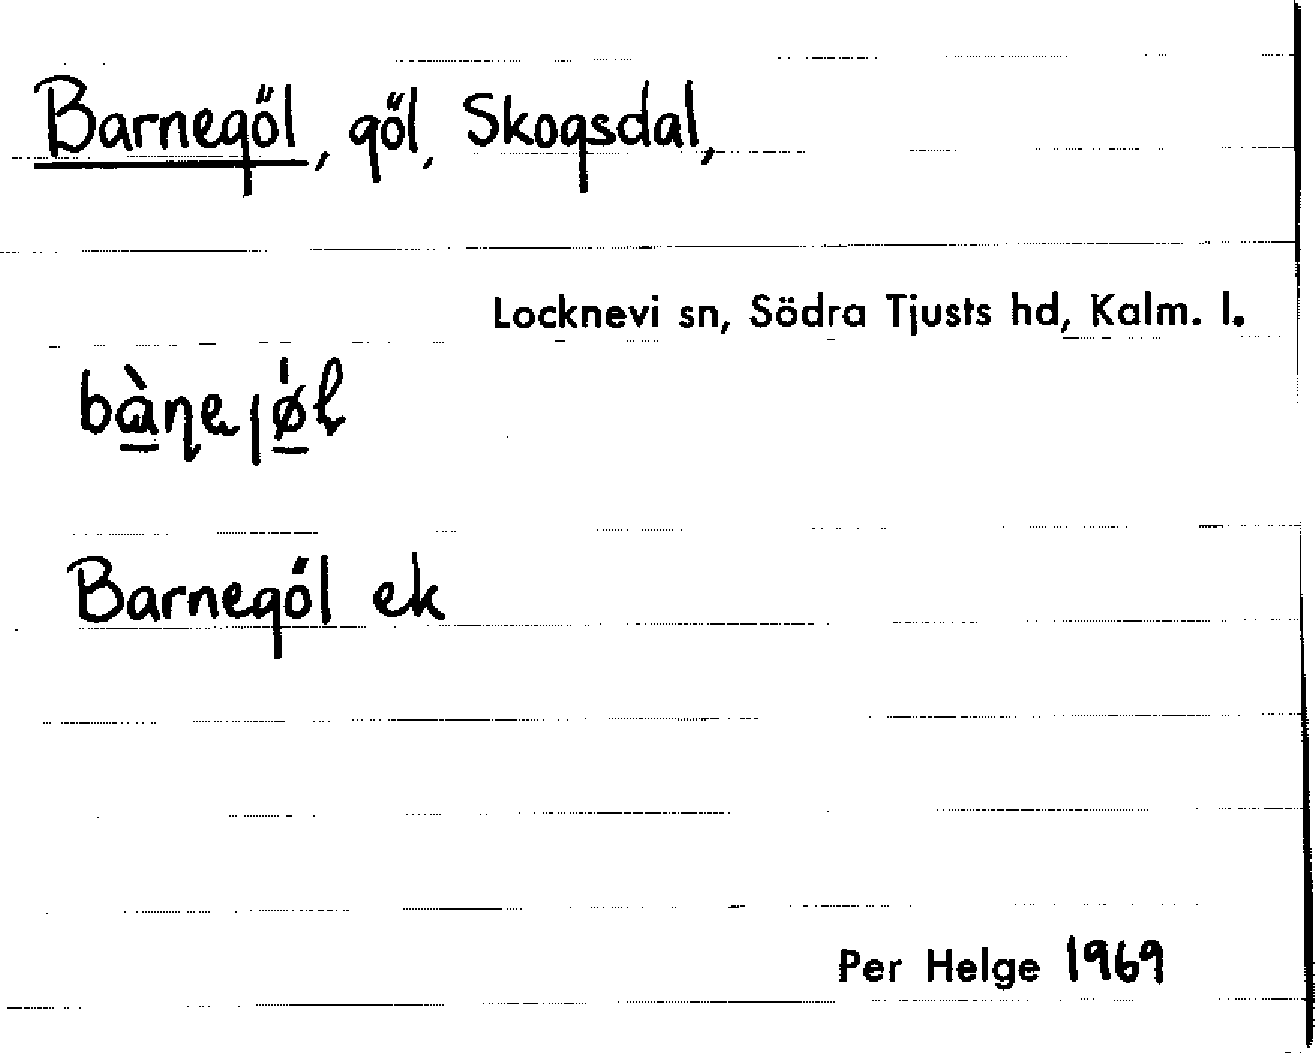 Barnegöl, göl, Skogsdal,
Locknevi sn, Södra Tjusts hd, Kalm. l.
bɑ̠̀ɳeȷø̠̍l
Barnegöl ek
Per Helge 1969